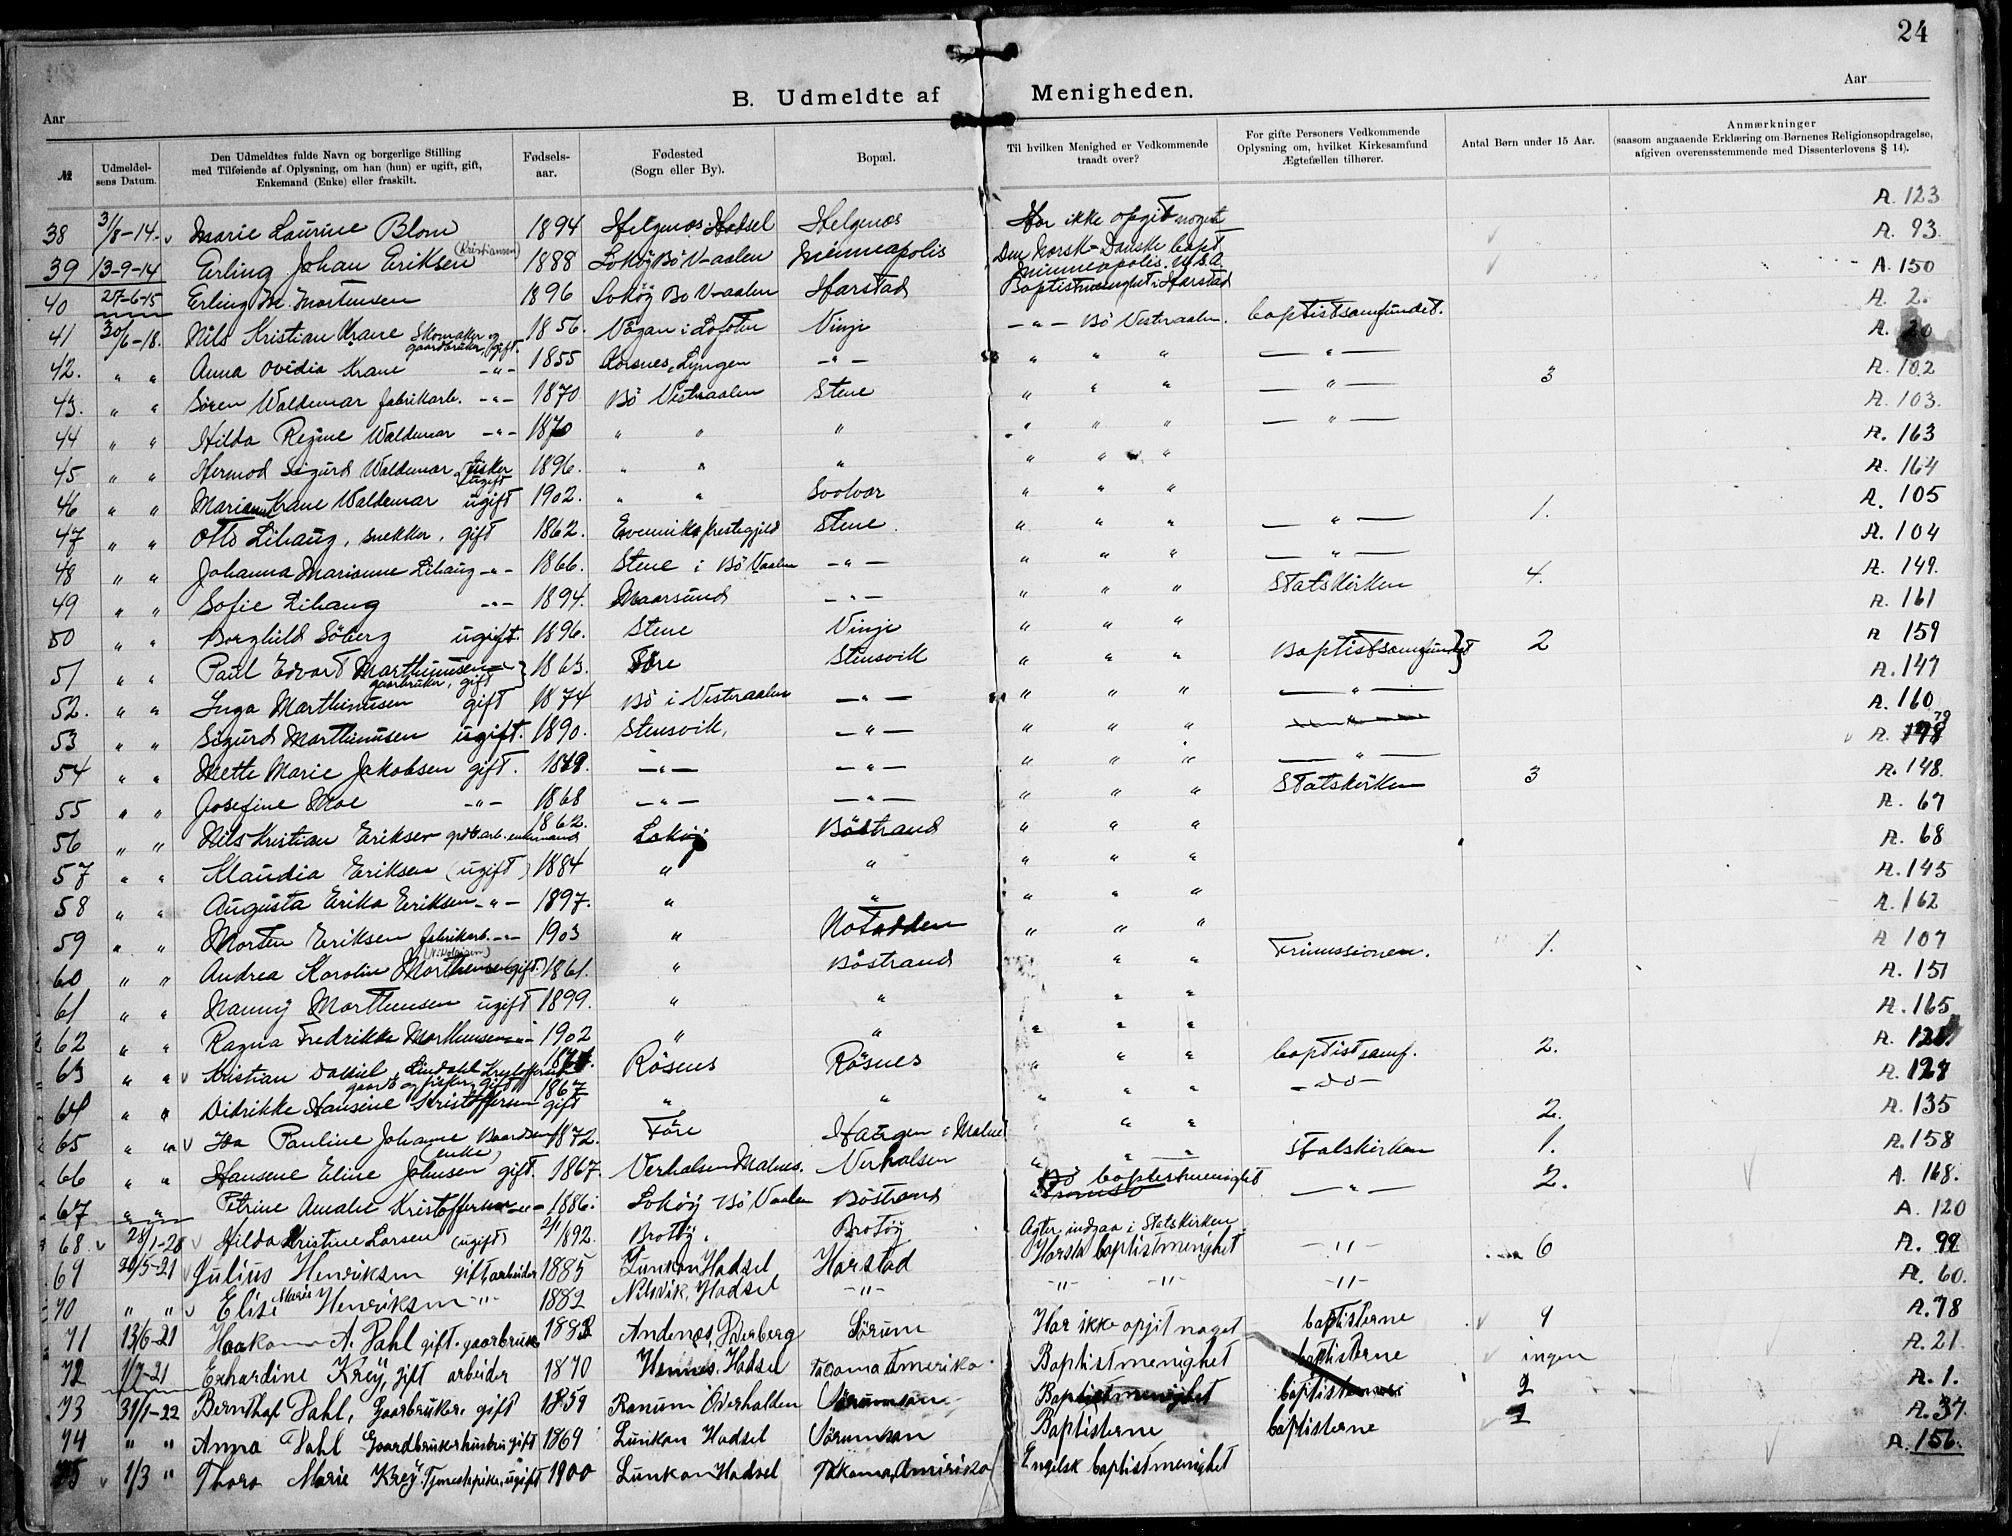 24
Aar
Aar
B. Udmeldte af Menigheden.
№
Udmeldelsens Datum.
Den Udmeldtes fulde Navn og borgerlige Stilling
med Tilføiende af Oplysning, om han (hun) er ugift, gift,
Enkemand (Enke) eller fraskilt.
Fødselsaar.
Fødested
(Sogn eller By).
Bopæl.
Til hvilken Menighed er Vedkommende
traadt over?
For gifte Personers Vedkommende
Oplysning om, hvilket Kirkesamfund
Ægtefællen tilhører.
Antal Børn under 15 Aar.
Anmærkninger
(saasom angaaende Erklæring om Børnenes Religionsopdragelse,
afgiven overensstemmende med Dissenterlovens § 14).
38 3/8-14. Marie Laurine Blom 1894 Helgenes Hadsel Helgenes Har ikke opgit noget A. 123
39 13-9-14 Erling Johan Eriksen (Kristiansen) 1888 Lokøy Bö V-aalen Minneapolis Den Norsk-Danske bapt. Minneapolis. U.S.A. A. 93
40 27-6-15 Erling M. Martensen 1896 Lokøy Bö V-aalen Harstad Baptistmenighet i Harstad A. 150
41 30/6-18. Nils Kristian Krane Skomaker og gaardbruker, gift. 1856. Vågan i Lofoten Vinje -"- Bö Vesteraalen. baptistsamfundet. A. 2.
42. " " Anna Ovidia Krane -"- 1855 Rosnes, Lyngen -"- " " " -"- A. 20
43. " " Søren Waldemar fabrikarb. -"- 1870 Bö Vestraalen Stene " " " -"- 3 A. 102
44 " " Hilda Regine Waldemar -"- 1870 " " " " " " -"- A. 103.
45 " " Hermod Sigurd Waldemar fisker ugift 1896. " " " " " " A. 163
46 " " Marie Krane Waldemar ugift 1902. " " Svolvær " " " A. 164
47 " " Otto Lihaug, snekker, gift 1862. Evenniks prestegjeld Stene. " " " -"- 1. A. 105
48 " " Johanna Marianne Lihaug -"- 1866. Stene i Bö Vaalen -"- " " " -"- A. 104
49 " " Sofie Lihaug -"- 1894. Maarsund -"- " " " Statskirken 4. A. 149.
50 " " Borghild Söberg ugift. 1896. Stene Vinje " " " A. 161
51 " " Paul Edvart Marthinusen gaarbruker, gift 1863. Före Stensvik " " " Baptistsamfundet 2 A 159
52. " " Inga Marthinusen gift 1874 Bö i Vestraalen -"- " " " -"- A. 147
53 " " Sigurd Marthinusen ugift. 1890. Stensvik, -"- " " " A. 160
54 " " Mette Marie Jakobsen gift. 1849. -"- -"- " " " -"- A. 79
55 " " Josefine Moe -"- 1868 -"- -"- " " " Statskirken 3 A. 148.
56 " " Nils Kristian Eriksen grdb.arb. enkemand 1862. Lokøy Böstrand " " " A. 67
57 " " Klaudia Eriksen (ugift) 1884 " " " " " A. 68
58 " " Augusta Erika Eriksen -"- 1897. " " " " " A. 145
59 " " Morten Eriksen fabrikarb. -"- 1903 " Notodden " " " A. 162
60 " " Andrea Karolin Marthinsen (gift.) 1861. " Böstrand " " Frimissionen. 1. A 107
61 " " Nanny Marthinsen ugift 1899. " " " " A. 151
62 " " Ragna Fredrikke Marthinsen -"- 1902 " " " " " A. 165
63 " " Kristian Daniel Lindahl Kristoffersen gaard og fisker, gift Rösnes Rösnes " " " baptist samf. 2.
64 " " Didrikke Hansine Kristoffersen gift 1867 " " " " " -do-
65 " " Ida Pauline Johanne Baardsen (enke) 1872. Före Haugen i Malnes " " " 2. A. 135
66 " " Hansene Eline Johnsen gift. 1867. Verhalsen Malnes. Verhalsen " " " Statskirken 1. A. 158
67 " " Petrine Amalie Kristoffersen -"- 1886. Lokøy Bö Vaalen Böstrand Bö baptistmenighet -"- 2. A. 168.
68. 28/1-20 Hilda Kristine Larsen (ugift) 2/1 1892. Brotøy. Brotøy Agter indgaa i Statskirken A. 120
69 20/5-21 Julius Henriksen gift arbeider 1885 Lunkan Hadsel Harstad Harstd baptistmenighet -"- 6 A. 92
70 " " Elise Marie Henriksen -"- 1882 Nilsvik, Hadsel -"- -"- -"- -"- A. 60.
71 13/6-21 Haakon A. Dahl gift. gaarbruker Andenes, Sörum Har ikke opgit noget baptisterne 4 A. 78
72 1/7-21 Erhardine Krey, gift arbeider 1870 Hennes, Hadsel Tacoma Amerika Baptistmenighet baptisterne ingen A. 21
73 31/1-22 Bernthof Dahl, Gaarbruker. gift 1859 Ranum Overhalden Baptistmenighet baptisternes 2 A. 1.
74 " " Anna Dahl Gaardbrukerhustru gift 1869 Lunkan Hadsel Baptisterne baptisterne A. 37.
75 1/3 " Thora Marie Krey. Tjenestepike, ugift 1900 Lunkan Hadsel Takoma, Amirika Engelsk baptistmenighet A. 156.